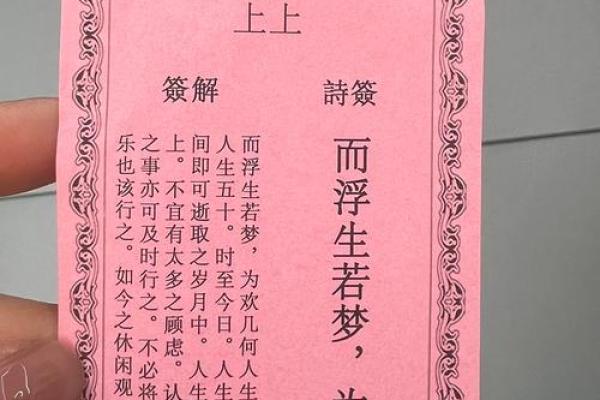 上上
詩簽
而浮生若梦，
簽解
而浮生若梦，为欢几何人生
人生五十。时至今日。人生
间即可逝取之岁月中。人生
上。不宜有太多之顾虑。认
之事亦可及时行之。不必将
乐也该行之。如今之休闲观